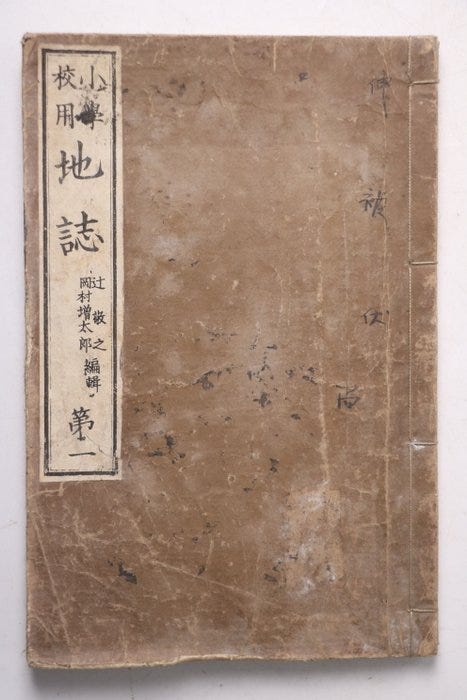 小學
校用
地誌
辻敬之
岡村増太郎
編輯
第一